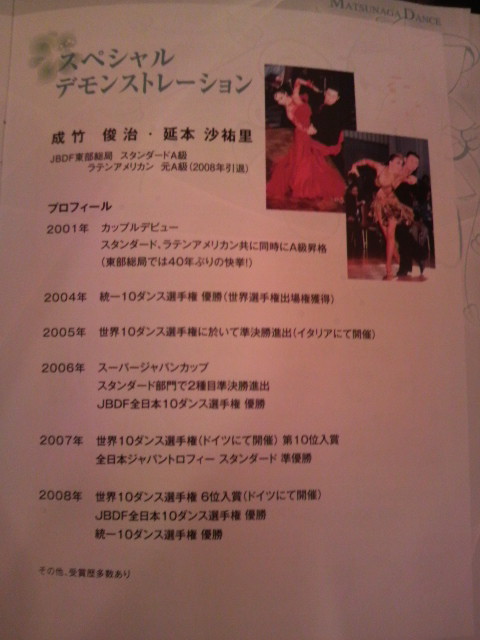 MATSUNAGA DANCE
スペシャル
デモンストレーション
成竹 俊治・延本 沙祐里
JBDF東部総局 スタンダードA級
ラテンアメリカン 元A級(2008年引退)
プロフィール
2001年 カップルデビュー
スタンダード、ラテンアメリカン共に同時にA級昇格
(東部総局では40年ぶりの快挙!)
2004年 統一10ダンス選手権 優勝(世界選手権出場権獲得)
2005年 世界10ダンス選手権に於いて準決勝進出(イタリアにて開催)
2006年 スーパージャパンカップ
スタンダード部門で2種目準決勝進出
JBDF全日本10ダンス選手権 優勝
2007年 世界10ダンス選手権(ドイツにて開催) 第10位入賞
全日本ジャパントロフィー スタンダード 準優勝
2008年 世界10ダンス選手権 6位入賞(ドイツにて開催)
JBDF全日本10ダンス選手権 優勝
統一10ダンス選手権 優勝
その他、受賞歴多数あり